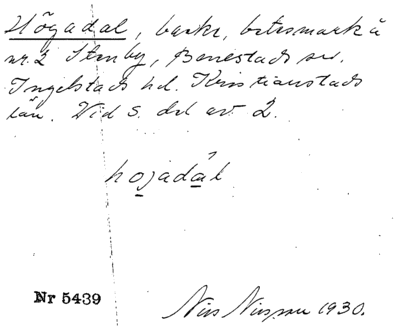 Högadal, backe, betesmark å
nr 2 Stenby, Benestads sn.
Ingelstads hd. Kristianstads
län. Vid S. del av 2.
hojadál
Nr 5439
Nils Nilsson 1930.